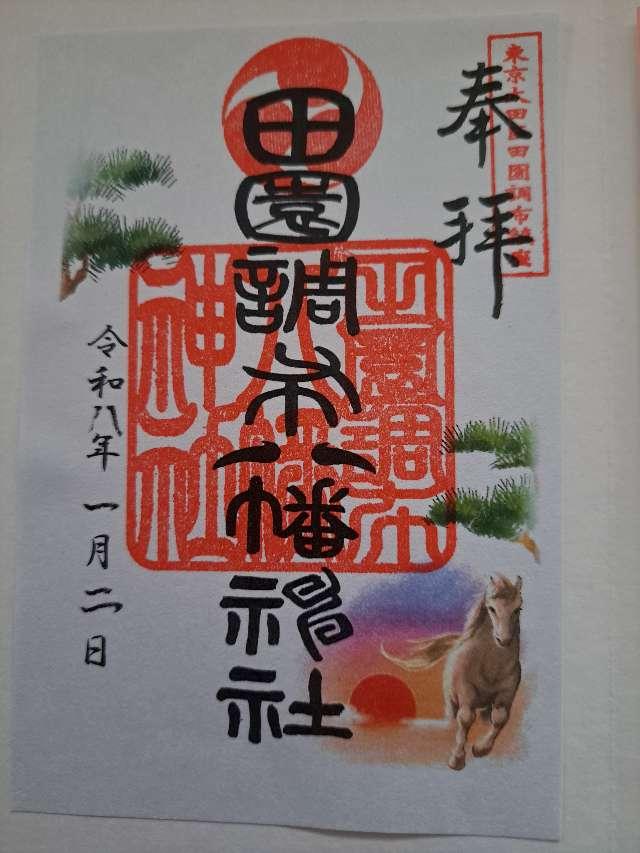 東京大田区田園調布鎮座
奉拝
田園調布八幡神社
田園調布
八幡
神社
令和八年 一月二日